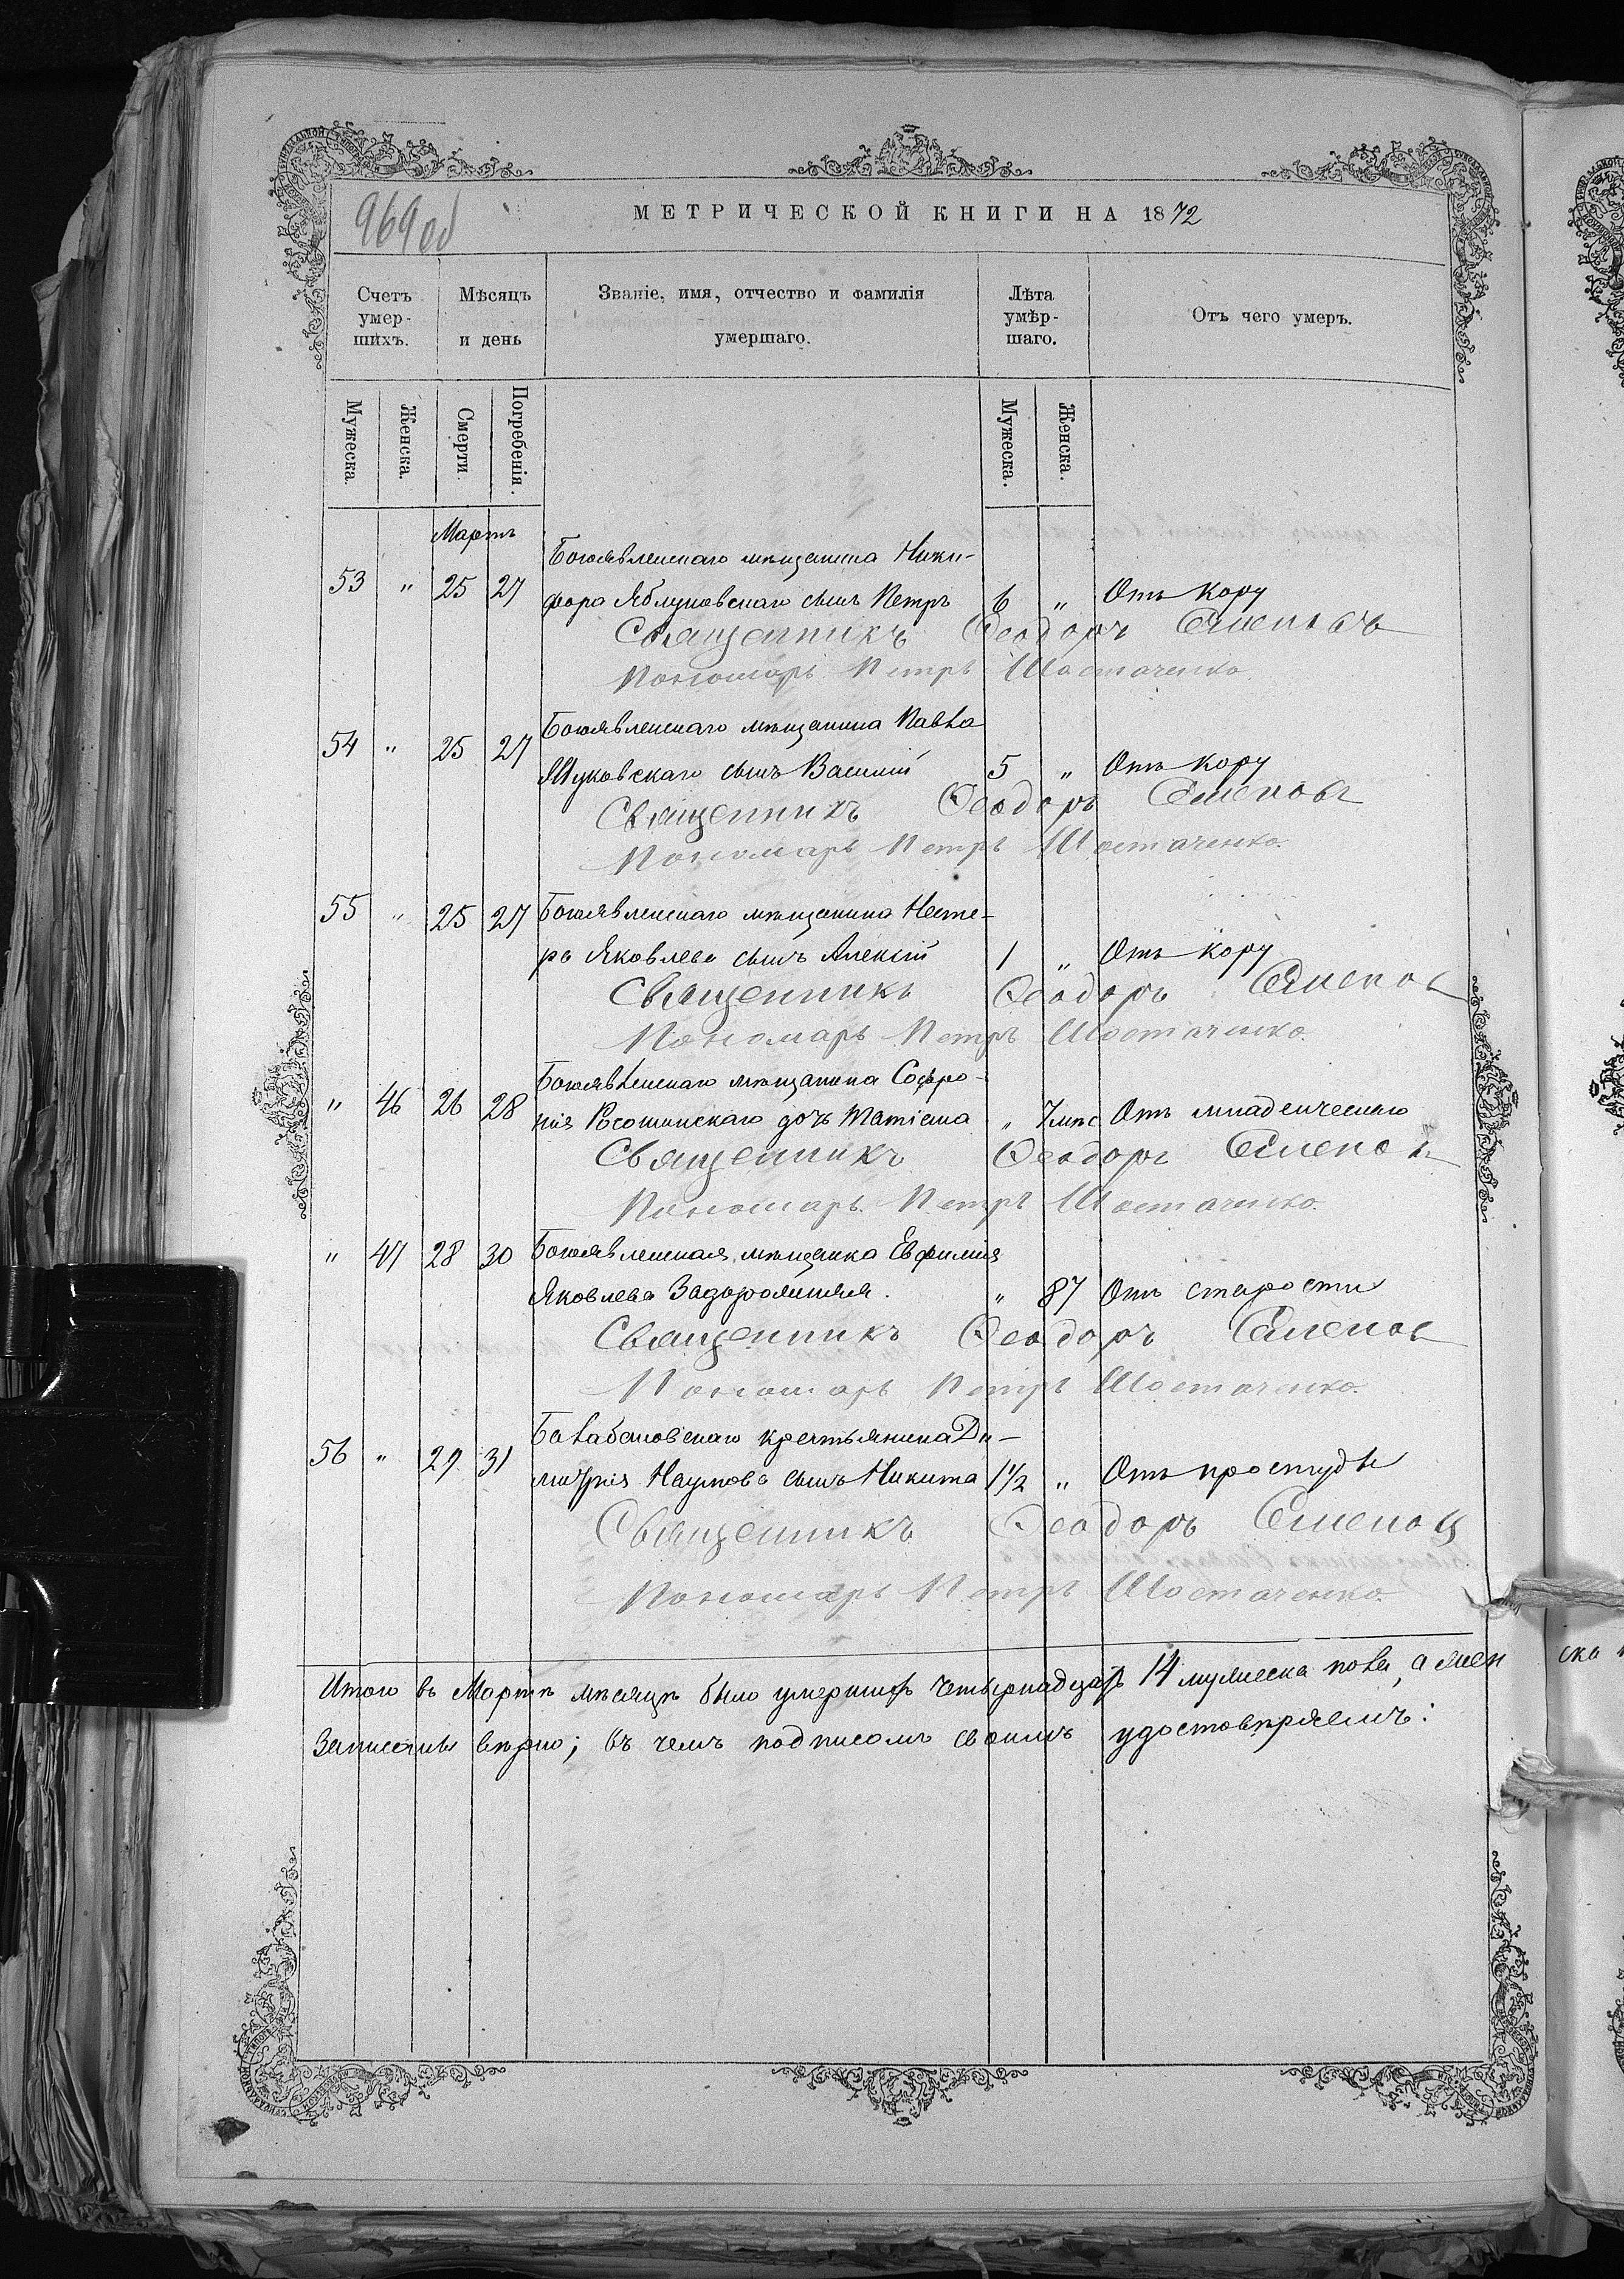 969 об
МЕТРИЧЕСКОЙ КНИГИ НА 1872
Счетъ умер-шихъ. Мѣсяцъ и день Званіе, имя, отчество и фамилія умершаго. Лѣта умѣр-шаго. Отъ чего умеръ.
Мужеска. Женска. Смерти. Погребенія. Мужеска. Женска.
Мартъ
Богоявленскаго мѣщанина Ники-
53 " 25 27 фора Яблуновскаго сынъ Петръ 6 " Отъ кору
Священникъ Ѳеодоръ Семеновъ
Пономарь Петръ Шостаченко.
Богоявленскаго мѣщанина Павла
54 " 25 27 Жуковскаго сынъ Василий 5 " Отъ кору
Священникъ Ѳеодоръ Семеновъ
Пономарь Петръ Шостаченко.
55 " 25 27 Богоявленскаго мѣщанина Несте-
ра Яковлева сынъ Алексій 1 " Отъ кору
Священникъ Ѳеодоръ Семенов
Пономарь Петръ Шостаченко.
Богоявленскаго мѣщанина Софро-
" 46 26 28 нія дочь Татіана " 7 мѣс Отъ младенческаго
Священникъ Ѳеодоръ Семенов
Пономарь Петръ Шостаченко.
" 47 28 30 Богоявленская мѣщанка Евфимія
Яковлева Задорожняя. " 87 Отъ старости
Священникъ Ѳеодоръ Семенов
Пономарь Петръ Шостаченко.
Балабановскаго крестьянина Ди-
56 " 29 31 митрія Наумова сынъ Никита 1½ " Отъ простуды
Священникъ Ѳеодоръ Семенов
Пономарь Петръ Шостаченко.
Итого въ Мартѣ мѣсяцѣ было умершихъ четырнадцать 14 мужеска пола, а жен
Записаны вѣрно; въ чемъ подписомъ своимъ удостовѣряемъ: